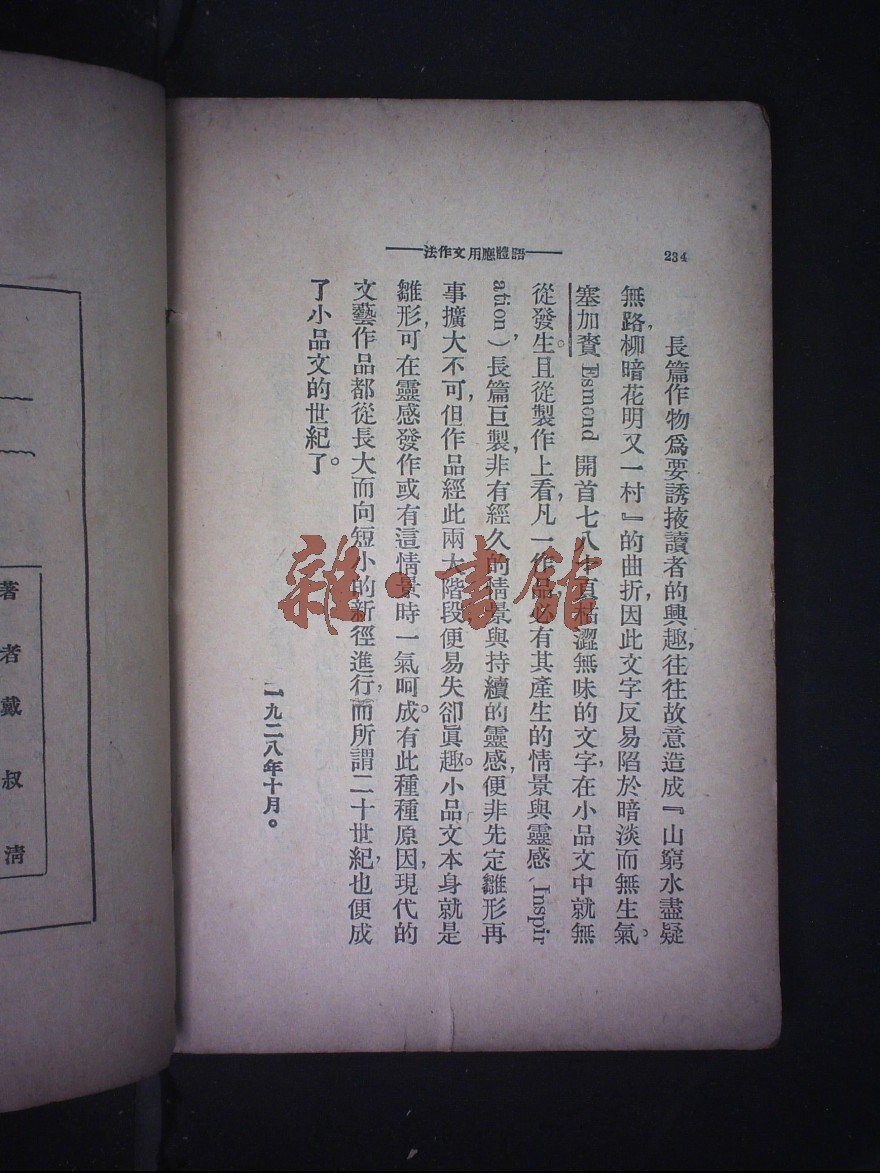 234
——語體應用文作法——
長篇作物爲要誘掖讀者的興趣，往往故意造成『山窮水盡疑
無路，柳暗花明又一村』的曲折，因此文字反易陷於暗淡而無生氣。
塞加賚 Esmond 開首七八十頁枯澀無味的文字，在小品文中就無
從發生。且從製作上看，凡一作品必有其產生的情景與靈感（Inspir
ation）長篇巨製，非有經久的情景與持續的靈感，便非先定雛形再
事擴大不可，但作品經此兩大階段便易失卻眞趣。小品文本身就是
雛形，可在靈感發作或有這情景時一氣呵成。有此種種原因，現代的
文藝作品都從長大而向短小的新徑進行，而所謂二十世紀，也便成
了小品文的世紀了。
一九二八年十月。
著者戴叔清
雜·書館